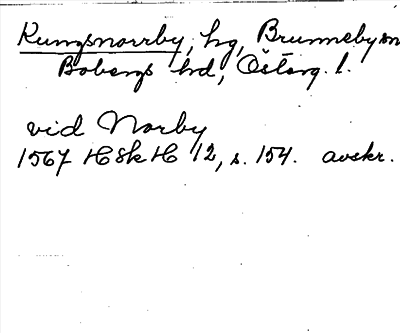 Kungsnorrby, hg, Brunneby sn
Bobergs hd, Österg. l.
vid Norby
1567 HSkH 12, s. 154. avskr.